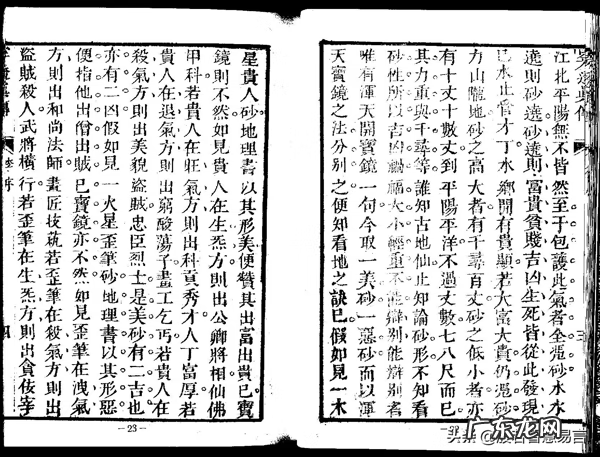 江北平陽無不皆然至于包護此氣者全恁砂水水
遶則砂遶砂遶則富貴貧賤吉凶生死皆從此發現
已水止管才丁水鄉開有貴顯若大富大貴仍恁砂
力山隴地砂之高大者有千尋百丈砂之低小者亦
有十丈十數丈到平陽平洋不過丈數七八尺而已
其力重與千尋等誰知古地仙止知論砂形不知討
砂性所以吉凶禍福大小輕重不能辯別能辯別
唯有渾天開寶鏡一句今取一美砂一惡砂而以渾
天寶鏡之法分別之便知看地之訣已假如見一木
星貴人砂地理書以其形美便贊其出富出貴已寶
鏡則不然如見貴人在生炁方則出公卿將相仙佛
甲科若貴人在旺氣方則出科貢秀才人丁富厚若
貴人在退氣方則出窮酸蕩子畫工乞丐若貴人在
殺氣方則出美貌盜賊忠臣烈士是美砂有二吉也
亦有二凶假如見一火星歪筆砂地理書以其形惡
便指他出僧出賊已寶鏡亦不然如見歪筆在洩氣
方則出和尚法師畫匠技統若歪筆在殺氣方則出
盜賊殺人武將橫行若歪筆在生炁方則出貪佞宰
四
—23—
广东龙网
头条